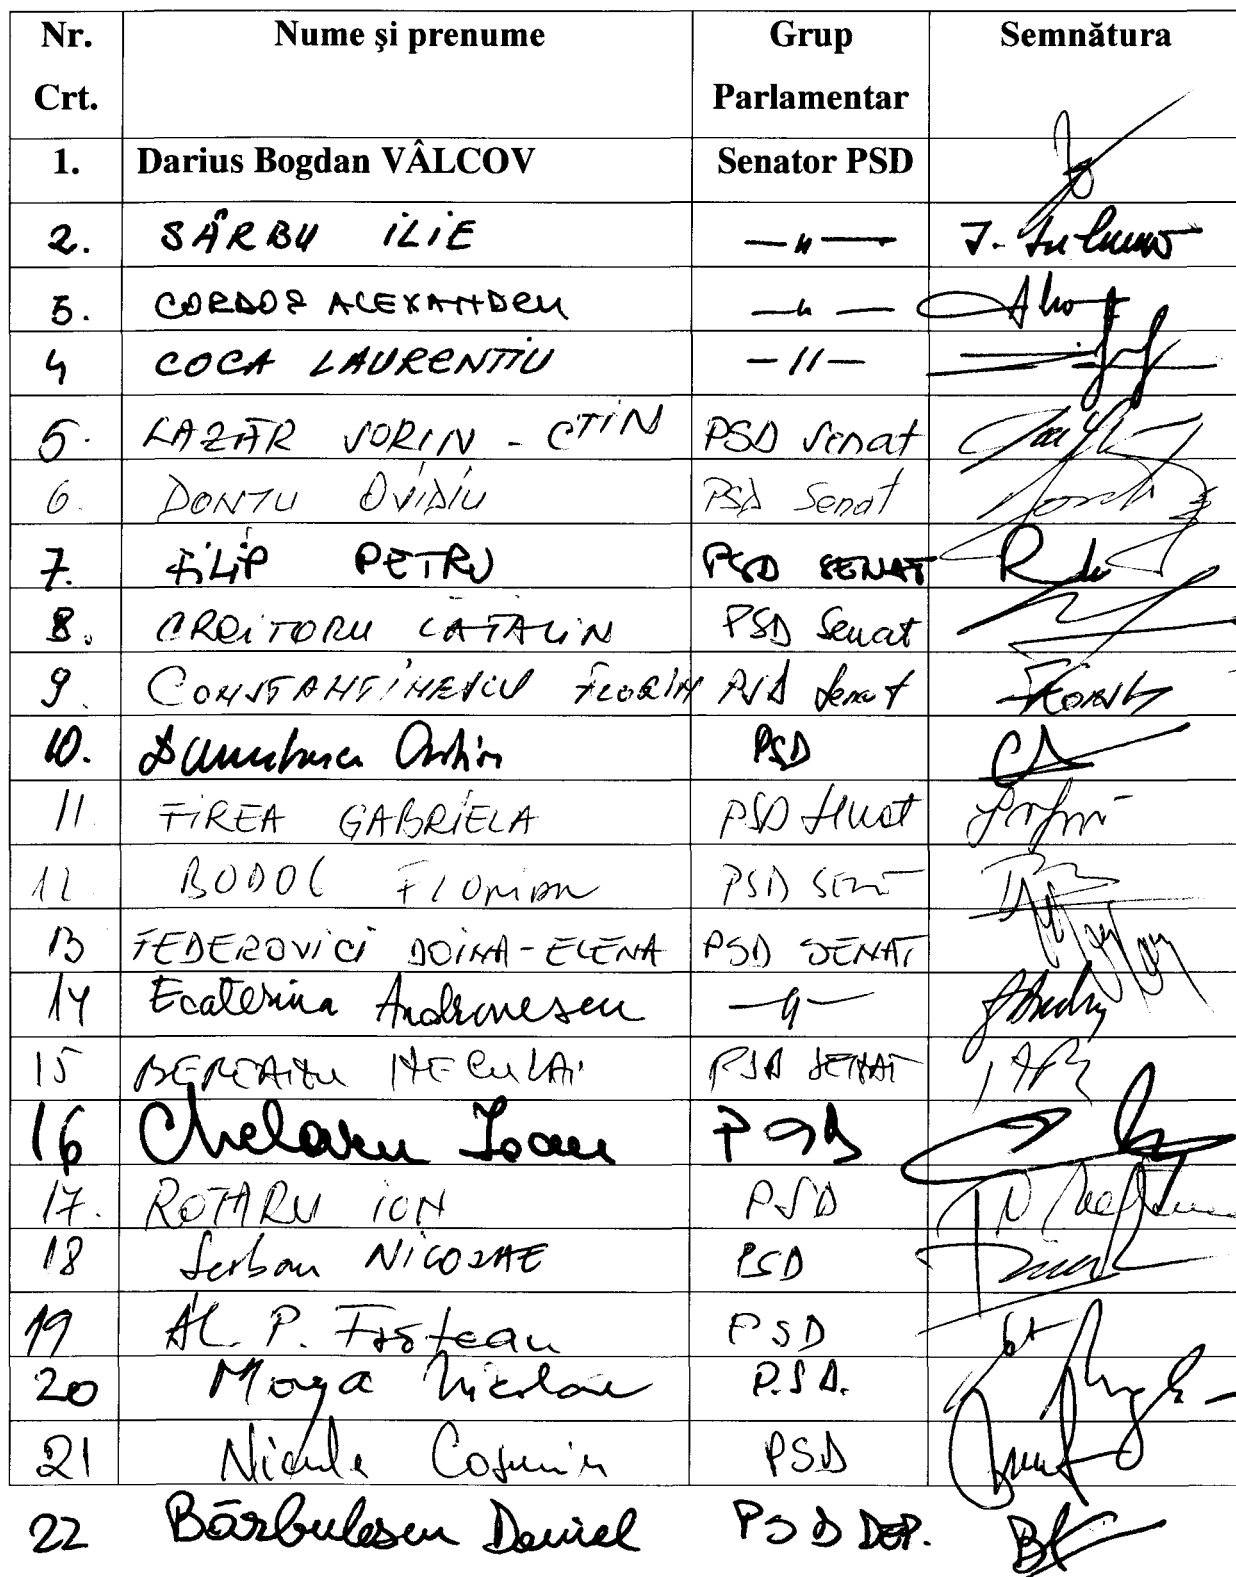 Nr. Crt. Nume şi prenume Grup Parlamentar Semnătura
1. Darius Bogdan VÂLCOV Senator PSD
2. SÂRBU ILIE —〃—
3. CORDOȘ ALEXANDRU —〃—
4 COCA LAURENTIU —〃—
5. LAZĂR SORIN - CTIN PSD Senat
6. DONTU OVIDIU PSD Senat
7. FILIP PETRU PSD SENAT
8. CROITORU CĂTĂLIN PSD Senat
9. CONSTANTINESCU FLORIN PSD Senat
10. PSD
11 FIREA GABRIELA PSD Senat
12 BODOG FLORIAN PSD
13 FEDEROVICI DOINA-ELENA PSD SENAT
14 Ecaterina Andronescu —〃—
15 BEREANU NECULAI PSD SENAT
16 Chelaru Ioan PSD
17. ROTARU ION PSD
18 Serban NICOLAE PSD
19 AL. P. PSD
20 Moga Nicolae P.S.D.
21 Nicula Cosmin PSD
22 Bărbulescu Daniel PSD DEP.